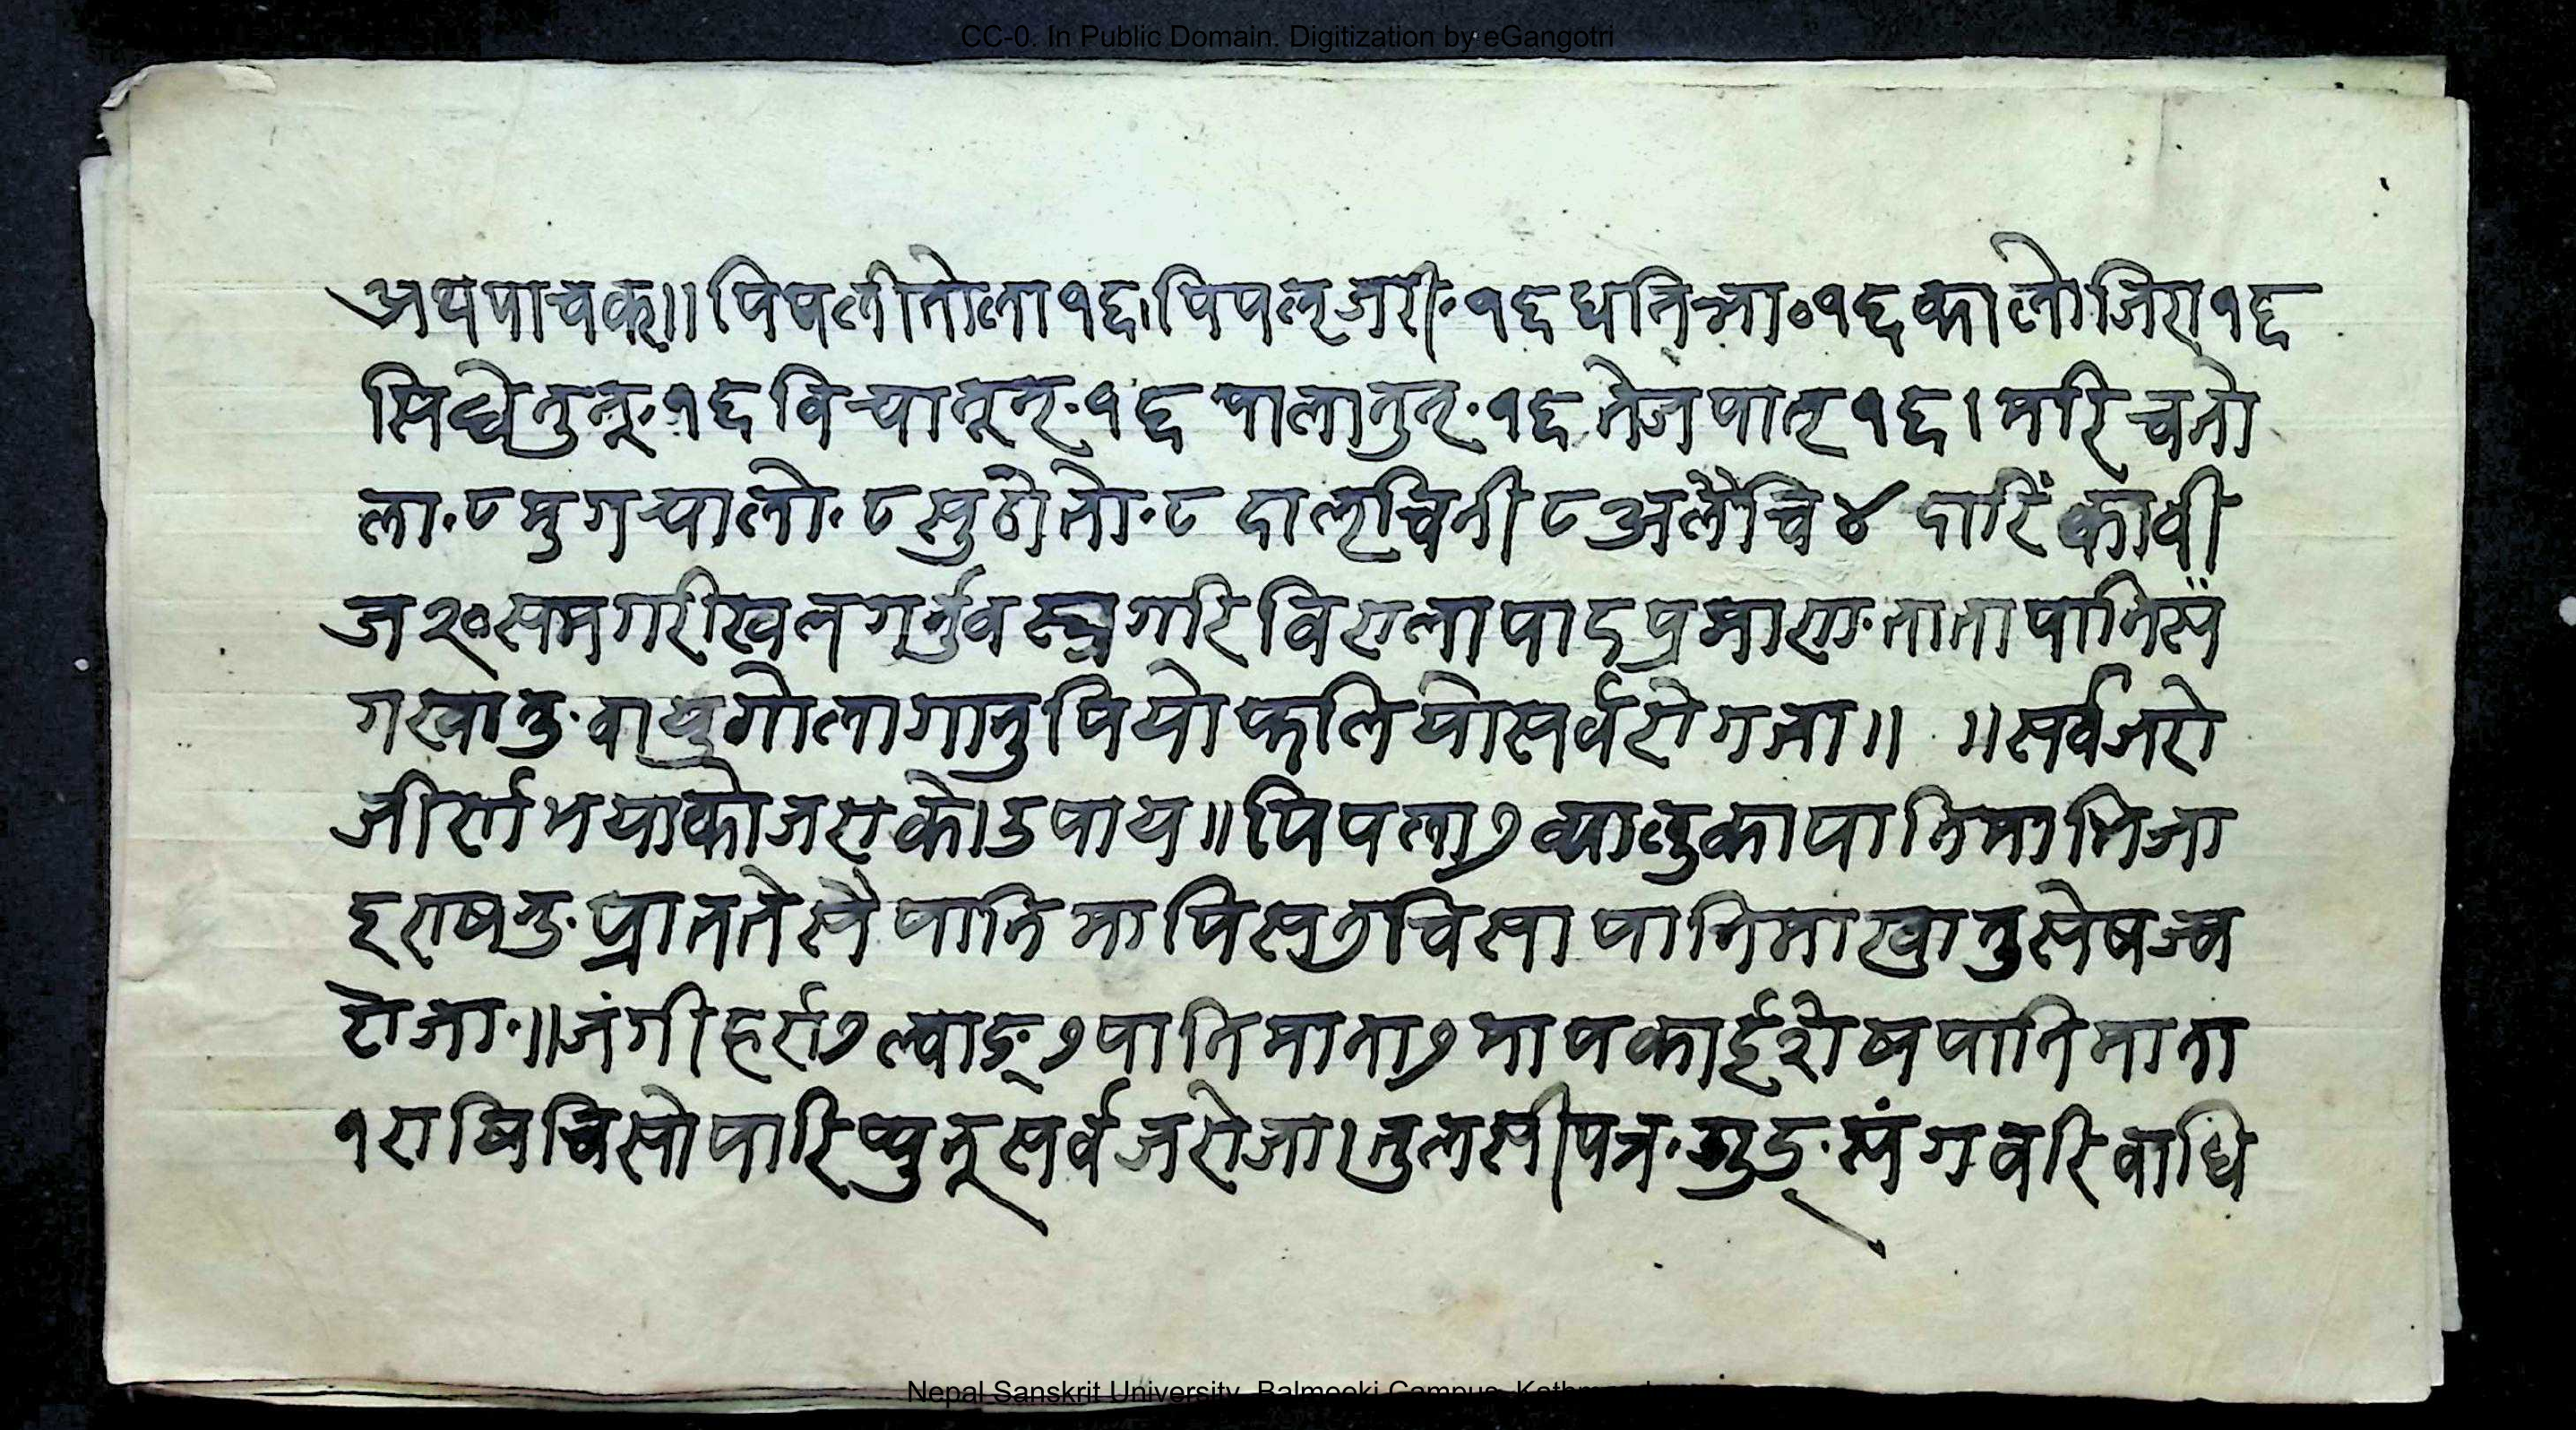 CC-0. In Public Domain. Digitization by eGangotri
अथपाचक्।। पिपलीतोला १६। पिपल्जरी. १६ धनिञा० १६ कालोजिरा १६
सिद्धेनुन्. १६ विऱ्यानून्. १६ पालानुन्. १६ तेजपात् १६ । मरिचतो
ला. ८ मुगऱ्यालो. ८ सुठोतो. ८ दाल्चिनी ८ अलैंचि ४ दारिंकावी
ज २० समगरीखल्गर्नुवस्त्रगरि विरालापादप्रमाण तातापानिसँ
गखानु. वायुगोलागानुपियोफलियोसर्वरोगजा॥ ॥ सर्वजरो
जीर्णभयाकोजराकोउपाय॥ पिपला७ व्यालुकापानिमाभिजा
इराषनु. प्रातते सै पानिमापिस्७चिसापानिमाखानुसेषज्व
रोजा.॥ जंगीहर्रा७ ल्वाङ्७ पानिमाना७ मापकाईशेषपानिमाना
१ राषिचिसोपारिप्युनूसर्वजरोजा। तुलसीपत्र. गुड्. संगवरिवाधि
Nepal Sanskrit University, Balmeeki Campus,